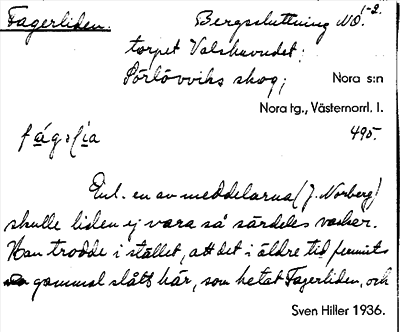 Fagerliden. Bergssluttning NO. 1-2.
torpet Valshuvudet:
Sörlövviks skog; Nora s:n
Nora tg., Västernorrl. l.
495.
Enl. en av meddelarna (J. Norberg)
skulle liden ej vara så särdeles vacker.
Han trodde i stället, att det i äldre tid funnits
gammal slått här, som hetat Fagerliden, och
Sven Hiller 1936.